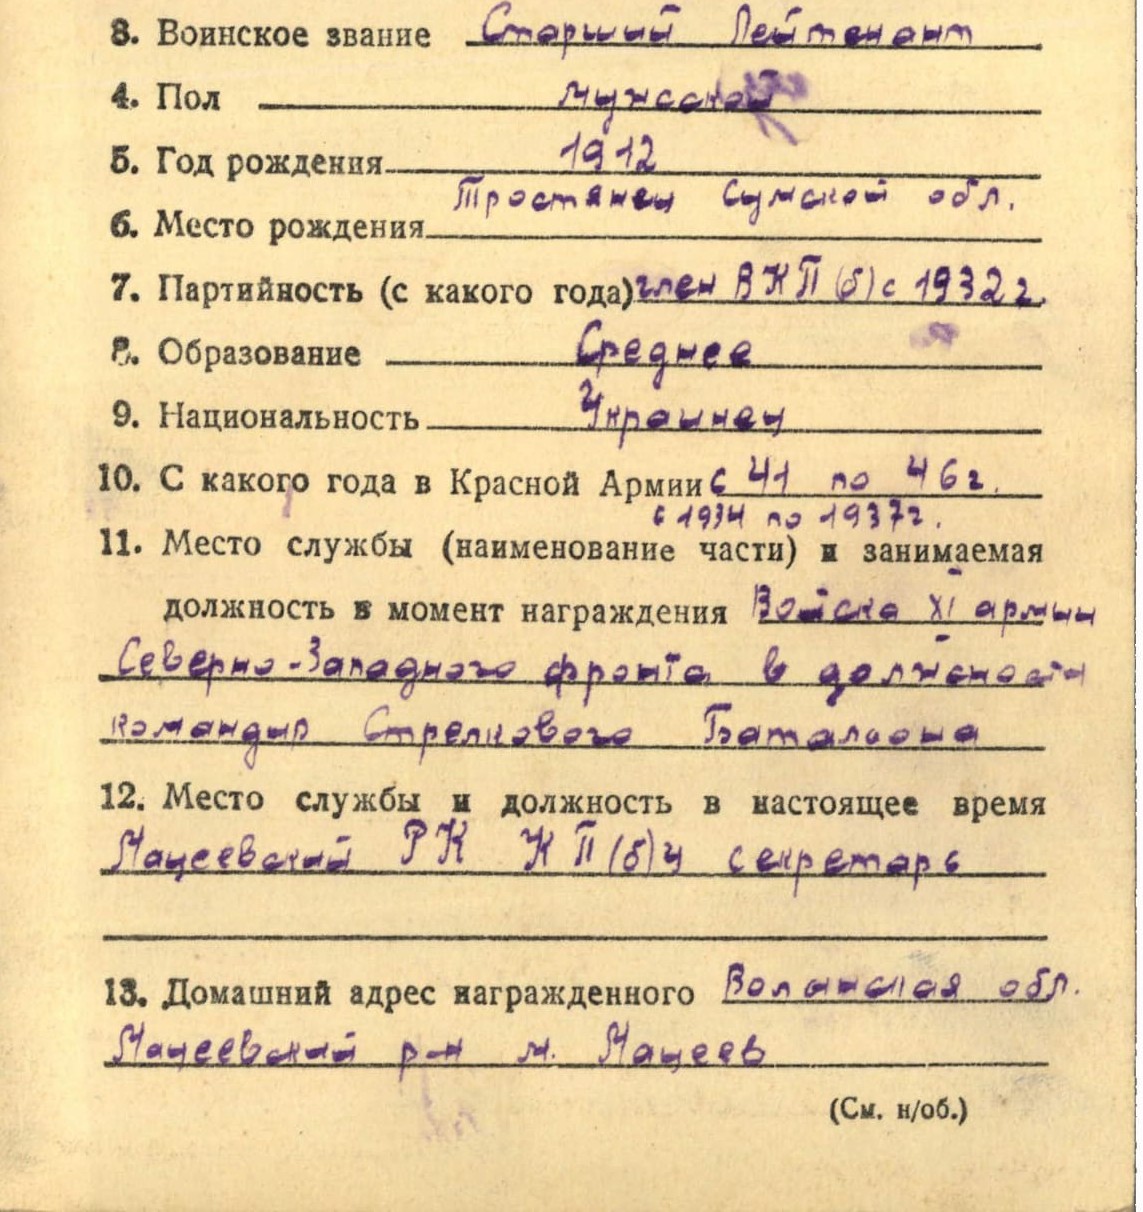 3. Воинское звание Старший Лейтенант
4. Пол мужской
5. Год рождения 1912
Тростянец Сумской обл.
6. Место рождения
7. Партийность (с какого года) член ВКП(б) с 1932 г.
8. Образование Среднее
9. Национальность Украинец
10. С какого года в Красной Армии с 41 по 46 г.
с 1934 по 1937 г.
11. Место службы (наименование части) и занимаемая
должность в момент награждения Войска XI армии
Северно-Западного фронта в должности
командир Стрелкового Баталиона
12. Место службы и должность в настоящее время
Мацеевский РК КП(б)У секретарь
13. Домашний адрес награжденного Волынская обл.
Мацеевский р-н м. Мацеев
(См. н/об.)